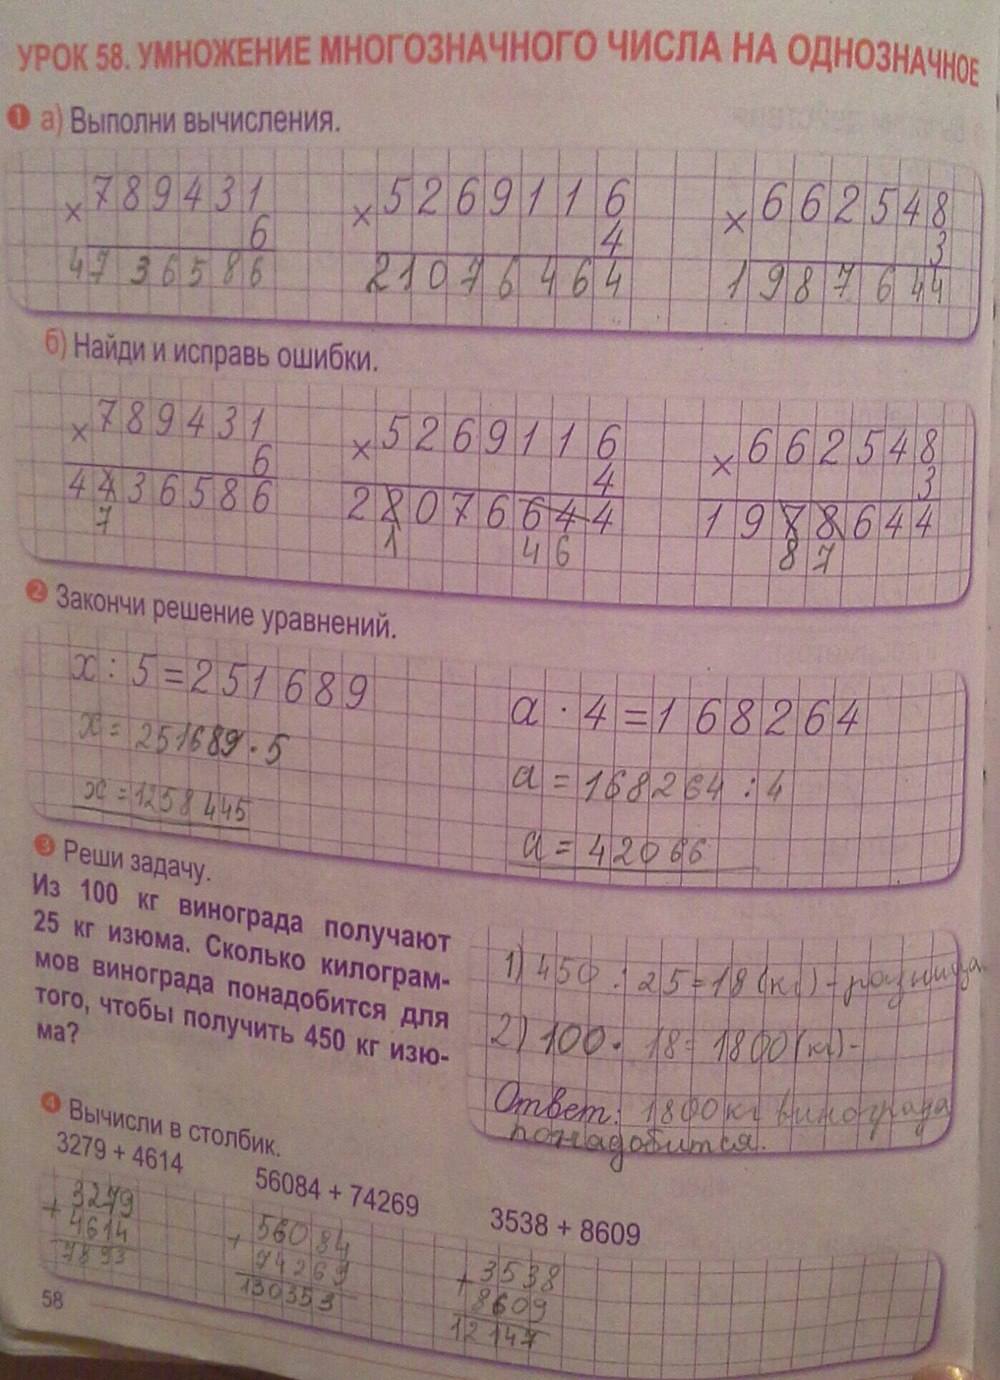 УРОК 58. УМНОЖЕНИЕ МНОГОЗНАЧНОГО ЧИСЛА НА ОДНОЗНАЧНОЕ
1 а) Выполни вычисления.
× 789431 × 5269116 × 662548
6 4 3
4736586 21076464 1987644
б) Найди и исправь ошибки.
× 789431 × 5269116 × 662548
6 4 3
4436586 28076644 1978644
7 1 46 87
2 Закончи решение уравнений.
x : 5 = 251689
x = 251689 · 5
x = 1258445
a · 4 = 168264
a = 168264 : 4
a = 42066
3 Реши задачу.
Из 100 кг винограда получают
25 кг изюма. Сколько килограм-
мов винограда понадобится для
того, чтобы получить 450 кг изю-
ма?
1) 450 : 25 = 18 (кг) - разница
2) 100 · 18 = 1800 (кг) -
Ответ: 1800 кг винограда
понадобится.
4 Вычисли в столбик.
3279 + 4614 56084 + 74269 3538 + 8609
+ 3279 + 56084 + 3538
4614 74269 8609
7893 130353 12147
58